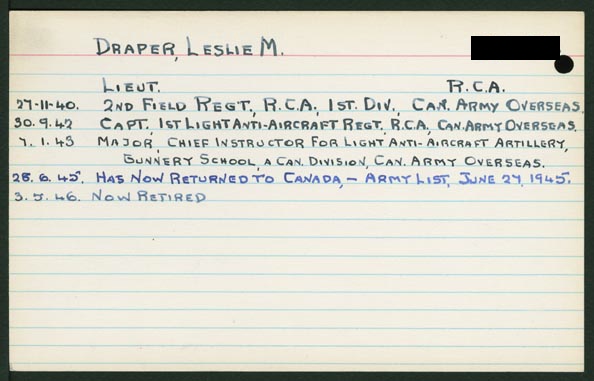 DRAPER, LESLIE M.
LIEUT. R.C.A.
27-11-40. 2ND FIELD REGT., R.C.A., 1ST. DIV., CAN. ARMY OVERSEAS.
30.9.42 CAPT., 1ST LIGHT ANTI-AIRCRAFT REGT., R.C.A., CAN. ARMY OVERSEAS.
7.1.43 MAJOR, CHIEF INSTRUCTOR FOR LIGHT ANTI-AIRCRAFT ARTILLERY,
GUNNERY SCHOOL, A CAN. DIVISION, CAN. ARMY OVERSEAS.
28.6.45. HAS NOW RETURNED TO CANADA, - ARMY LIST, JUNE 27, 1945.
3.5.46. NOW RETIRED